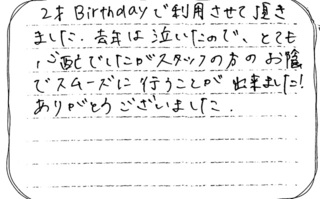 2才 Birthdayで利用させて頂き
ました. 去年は泣いたので、とても
心配でしたがスタッフの方のお陰
でスムーズに行うことが 出来ました!
ありがとうございました.